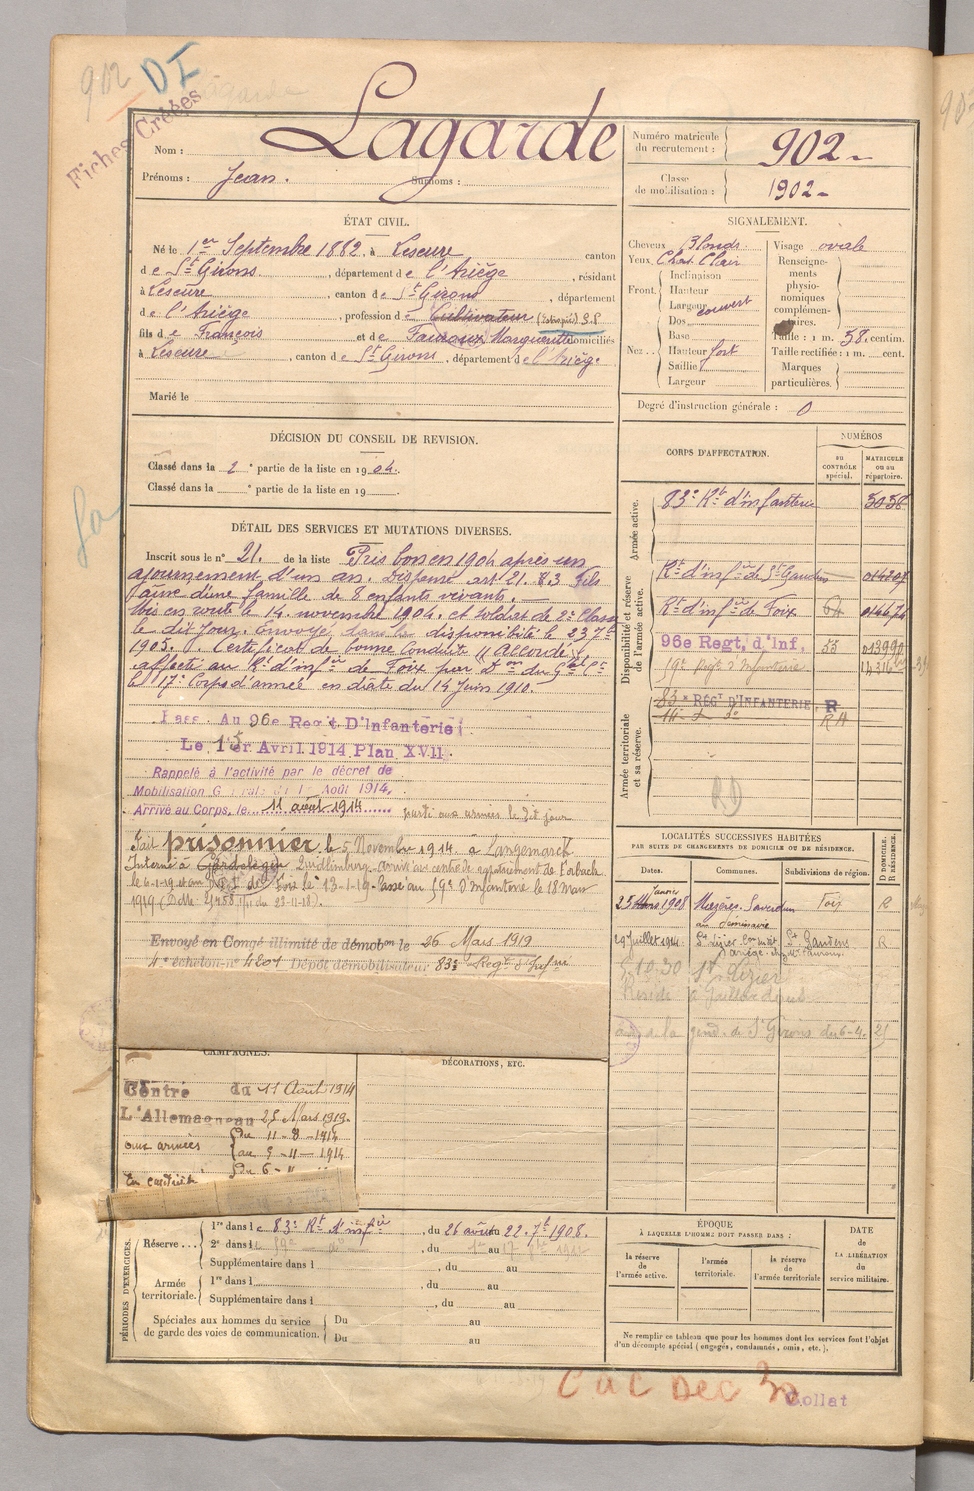 902 DI
Fiches Créées
Nom : Lagarde
Prénoms : Jean. Surnoms :
Numéro matricule du recrutement : 902
Classe de mobilisation : 1902
ÉTAT CIVIL.
Né le 1er Septembre 1882, à Lescure canton
de St Girons, département de l'Ariège, résidant
à Lescure, canton de St Girons, département
de l'Ariège, profession de Cultivateur
fils de François et de Marguerite domiciliés
à Lescure, canton de St Girons, département de l'Ariège.
Marié le
SIGNALEMENT.
Cheveux Blonds.
Yeux Chat. Clair
Front. Inclinaison
Hauteur
Largeur couvert
Nez. Dos
Base
Hauteur fort
Saillie
Largeur
Visage ovale
Renseignements physionomiques complémentaires.
Taille : 1 m. 58. centim.
Taille rectifiée : 1 m. cent.
Marques particulières.
Degré d'instruction générale : 0
DÉCISION DU CONSEIL DE REVISION.
Classé dans la 2e partie de la liste en 1904.
Classé dans la e partie de la liste en 19
DÉTAIL DES SERVICES ET MUTATIONS DIVERSES.
Inscrit sous le n° 21. de la liste Pris bon en 1904 après un
ajournement d'un an. Dispensé art 21. 83 fils
aîné d'une famille de 8 enfants vivants.
Mis en route le 14 novembre 1904. et soldat de 2e Classe
le dit jour. Envoyé dans la disponibilité le 23 7bre
1905. Certificat de bonne Conduite "Accordé"
affecté au Rt d'infie de Foix par
le 17e Corps d'armée en date du 14 Juin 1910.
Pass. Au 96e Regt D'Infanterie
Le 1er Avril 1914 Plan XVII.
Rappelé à l'activité par le décret de
Mobilisation Générale du 1 Août 1914,
Arrivé au Corps, le 11 août 1914 parti aux armées le dit jour
Fait prisonnier le 5 Novembre 1914 à Langemarck
Interné à Gardelegen Quedlinburg
Foix le 13-1-19. Passé au 59e d'Infanterie le 18 Mars
1919
Envoyé en Congé illimité de démobon le 26 Mars 1919
4e échelon n° 4201 Dépôt démobilisateur 83e Regt d'Infrie
CORPS D'AFFECTATION.
NUMÉROS
au CONTRÔLE spécial.
MATRICULE ou au répertoire.
Armée active.
83e Rt d'infanterie 5058
Disponibilité et réserve de l'armée active.
Rt d'infie de St Gaudens 014207
Rt d'infie de Foix 64 014674
96e Regt, d'Inf. 53 013990
59e Regt d'Infanterie
Armée territoriale et sa réserve.
83e REGT D'INFANTERIE R
RD
LOCALITÉS SUCCESSIVES HABITÉES
PAR SUITE DE CHANGEMENTS DE DOMICILE OU DE RÉSIDENCE.
Dates. Communes. Subdivisions de région. D DOMICILE. R RÉSIDENCE.
25 Janvier 1908 Mazères-Saverdun Foix R
au Séminaire
29 Juillet 1911 St Lizier St Gaudens R
10-30 St Lizier
Réside à
de la gend. de St Girons du 6-4. 25
CAMPAGNES.
Contre du 11 Août 1914
L'Allemagne au 25 Mars 1919.
aux armées du 11-8-1914
au 5-11-1914
En captivité du 6-11
DÉCORATIONS, ETC.
PÉRIODES D'EXERCICES.
Réserve ... 1re dans le 83e Rt d'infie, du 26 août au 22 7bre 1908.
2e dans le 59e, du 1er au 17 7bre
Supplémentaire dans l, du au
Armée territoriale. 1re dans l, du au
Supplémentaire dans l, du au
Spéciales aux hommes du service de garde des voies de communication. Du au
Du au
ÉPOQUE
À LAQUELLE L'HOMME DOIT PASSER DANS :
la réserve de l'armée active.
l'armée territoriale.
la réserve de l'armée territoriale
DATE DE LA LIBÉRATION du service militaire.
Ne remplir ce tableau que pour les hommes dont les services font l'objet
d'un décompte spécial (engagés, condamnés, omis, etc.).
CUC DEC 30
Collat